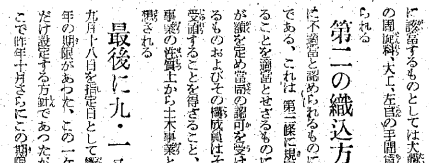 に該当するものとしては大
の周旋料、大工、左官の手間
られる
第二の織込方
に不適当と認められるものに
である、これは第二條に規
ることを適当とせざるものに
が額を定め当局の認可を受け
るものおよびその構成員はそ
受領することを得ざること、
事業の性質上から土木事業と
される
最後に九・一
九月十八日を指定日として
年の期限があつた、この一ケ
だけ設定する方針であつたが
こで昨年十月さらにこの期限